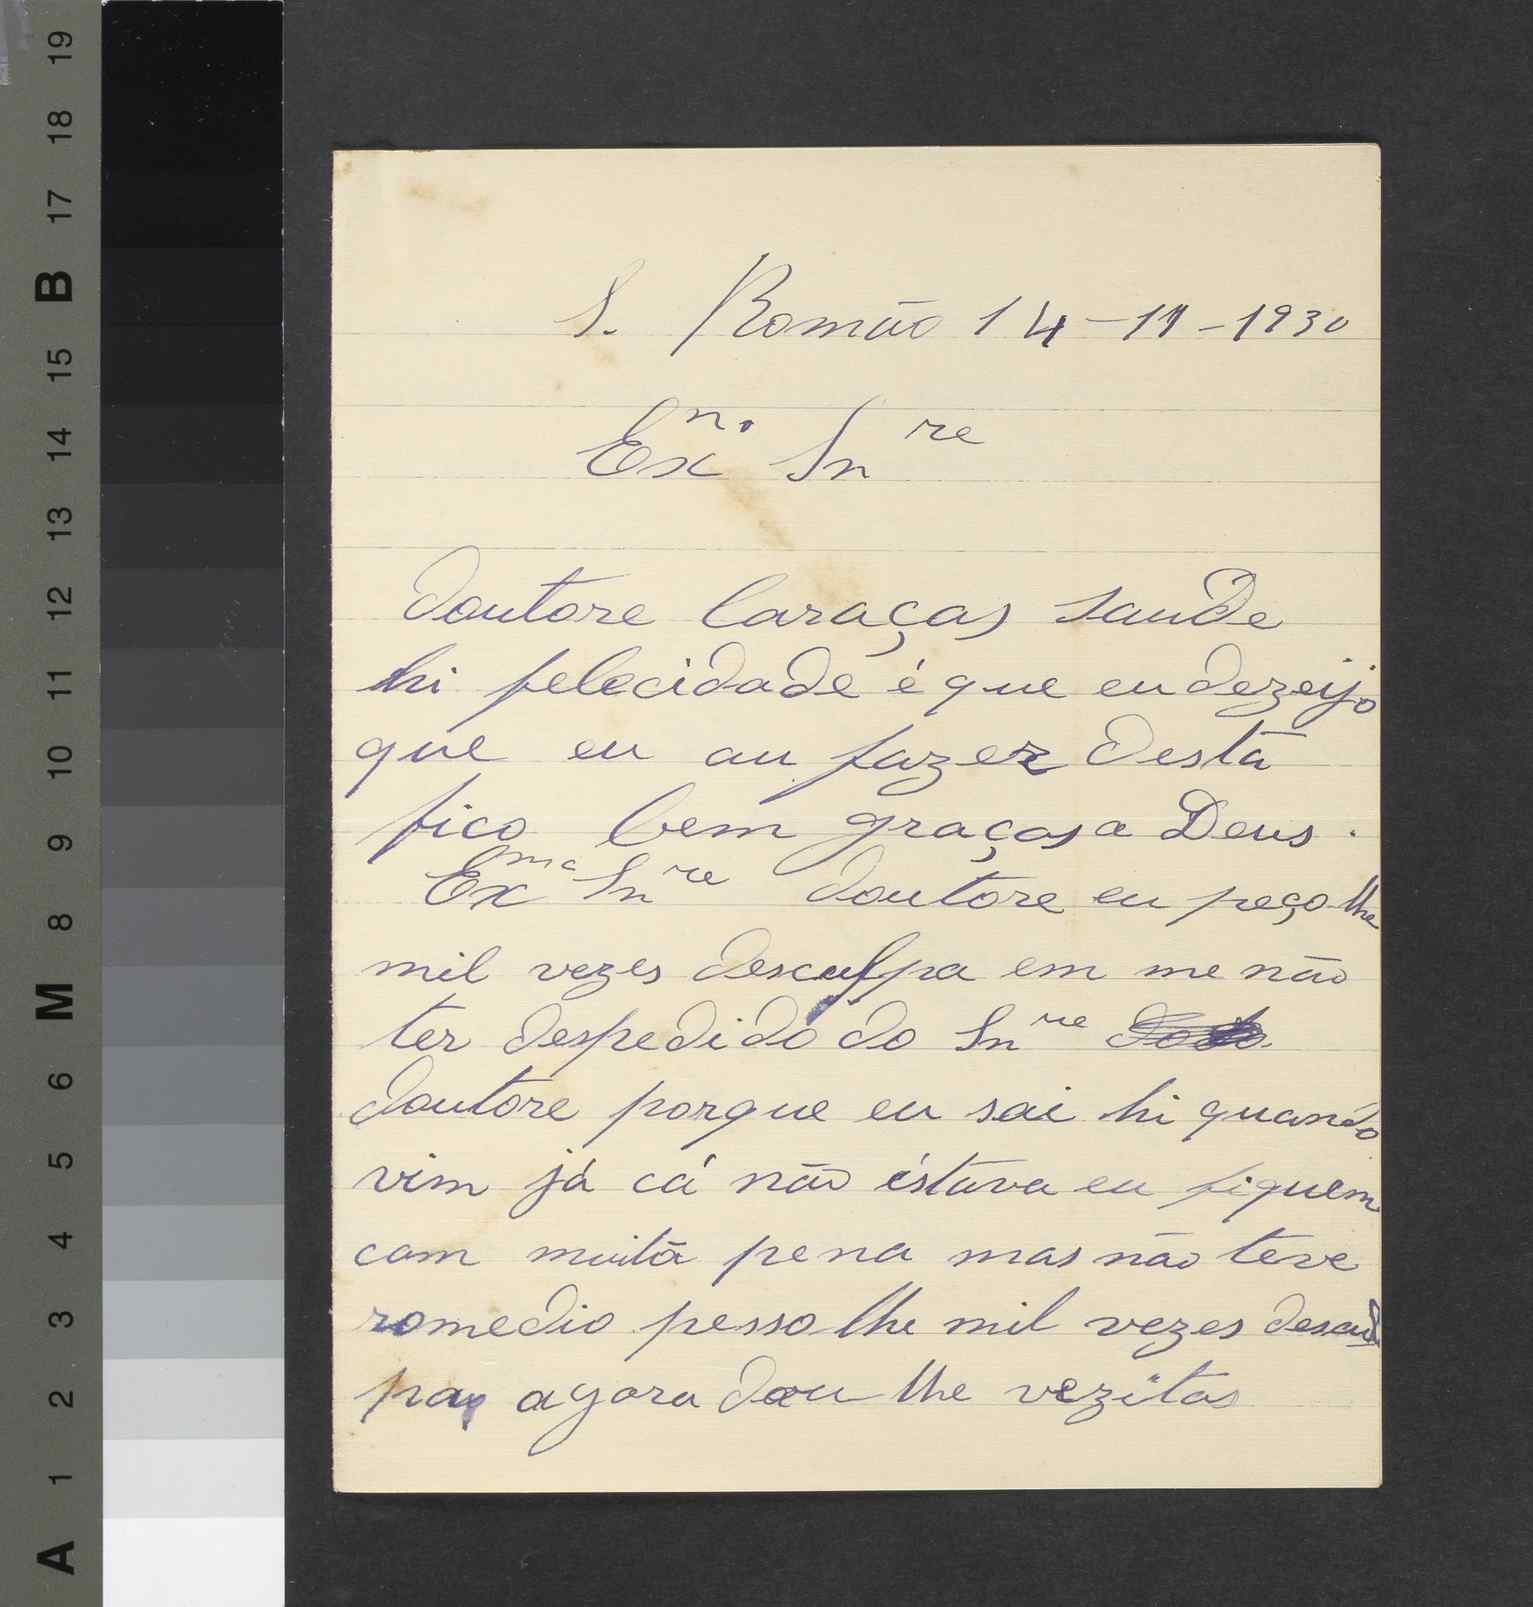 S. Romão 14-11-1930
Exn. Snre
doutore Caraças saude
hi felecidade é que eu dezeijo
que eu au fazer desta
fico bem graças a Deus.
Exma Snre doutore eu peço lhe
mil vezes desculpa em me não
ter despedido do Snre
doutore porque eu sai hi quando
vim já cá não éstava eu fiquem
com muita pena mas não teve
romedio pesso lhe mil vezes descul
pa, agora dou lhe vezitas
19
18
17
B
15
14
13
12
11
10
9
8
M
6
5
4
3
2
1
A